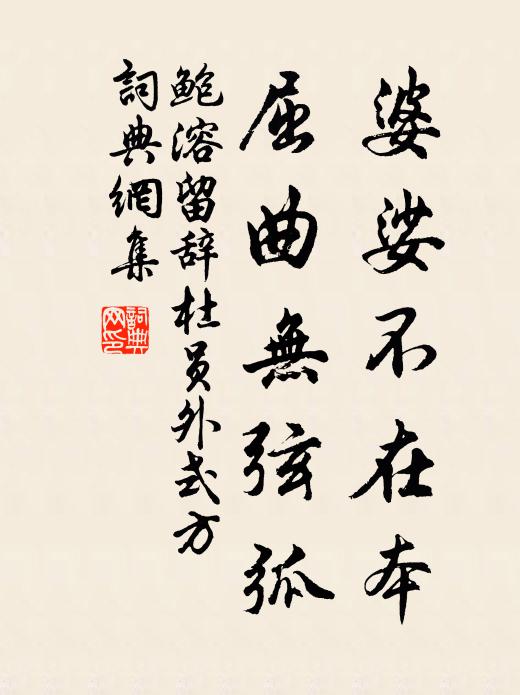 婆娑不在本
屈曲無弦弧
鲍溶留辞杜员外式方
詞典網集
詞典
网印